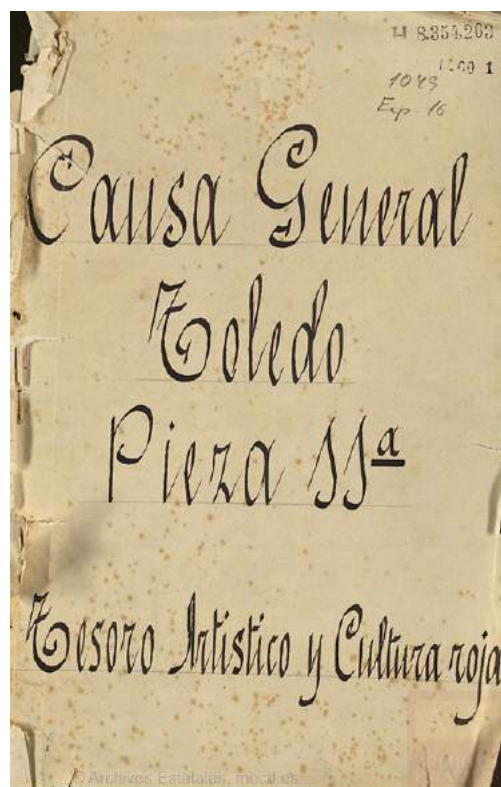 H 8.354.203
1049
Exp. 16
Causa General
Toledo
Pieza 11ª
Tesoro Artistico y Cultura roja
© Archivos Estatales, mecd.es